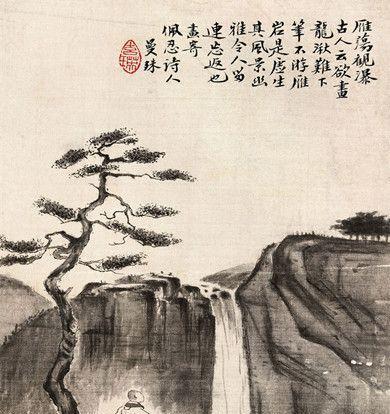 雁蕩觀瀑
古人云欲畫
龍湫難下
筆不游雁
岩是虛生
其風景幽
雅令人留
連忘返也
畫寄
佩忍詩人
曼殊